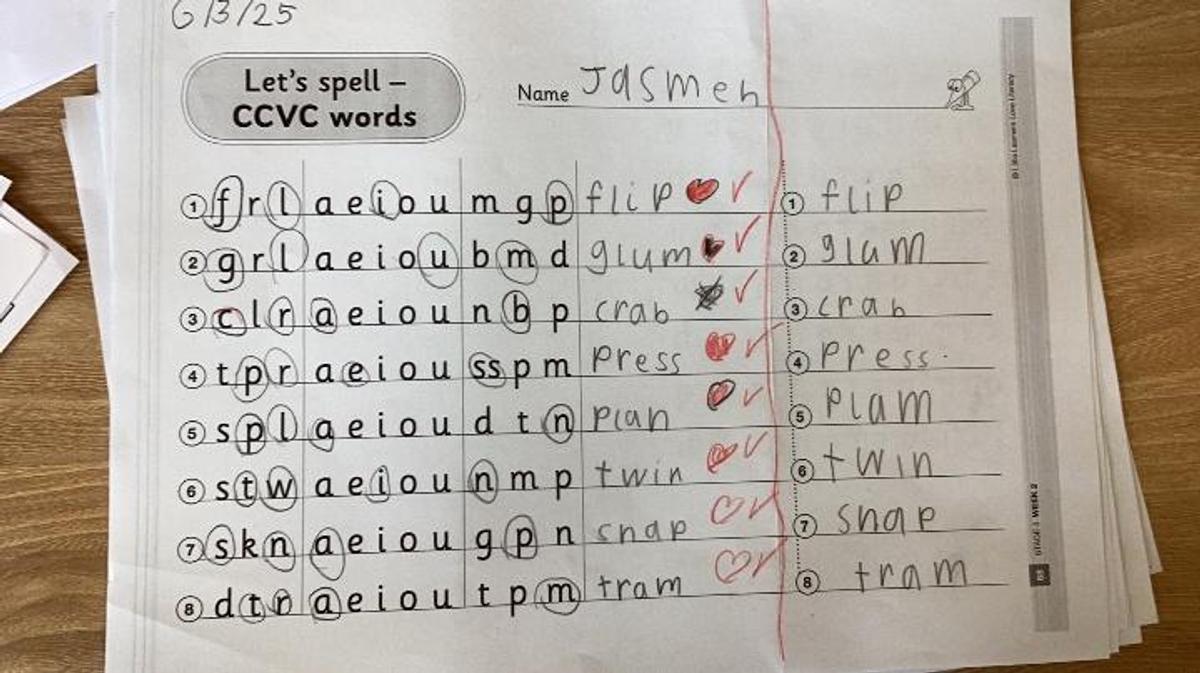 6/3/25
Let's spell –
CCVC words
Name Jasmeh
1 f r l a e i o u m g p flip ✓ 1 flip
2 g r l a e i o u b m d glum ✓ 2 glam
3 c l r a e i o u n b p crab ✓ 3 crab
4 t p r a e i o u ss p m press ✓ 4 press.
5 s p l a e i o u d t n plan ✓ 5 plam
6 s t w a e i o u n m p twin ✓ 6 twin
7 s k n a e i o u g p n snap ✓ 7 snap
8 d t r a e i o u t p m tram ✓ 8 tram
STAGE 3 WEEK 2